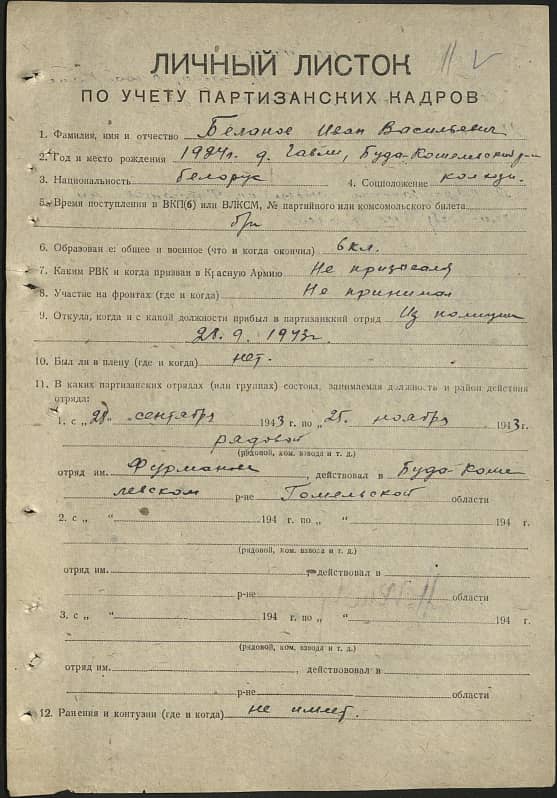 ЛИЧНЫЙ ЛИСТОК
ПО УЧЕТУ ПАРТИЗАНСКИХ КАДРОВ
1. Фамилия, имя и отчество Белоное Иван Васильевич
2. Год и место рождения 1924г. д. Гавли, Буда-Кошелевский р-н
3. Национальность белорус 4. Соцположение колхоз.
5. Время поступления в ВКП(б) или ВЛКСМ, № партийного или комсомольского билета
б/п
6. Образование: общее и военное (что и когда окончил) 6 кл.
7. Каким РВК и когда призван в Красную Армию Не призывался
8. Участие на фронтах (где и когда) Не принимал
9. Откуда, когда и с какой должности прибыл в партизанский отряд Из полиции
28.9.1943г.
10. Был ли в плену (где и когда) нет.
11. В каких партизанских отрядах (или группах) состоял, занимаемая должность и район действия
отряда:
1. с „28" сентября 1943 г. по „25" ноября 1943г.
рядовой
(рядовой, ком. взвода и т. д.)
отряд им. Фурманов, действовал в Буда-Коше
левском р-не Гомельской области
2. с „ " 194 г. по „ " 194 г.
(рядовой, ком. взвода и т. д.)
отряд им. , действовал в
р-не области
3. с „ " 194 г. по „ " 194 г.
(рядовой, ком. взвода и т. д.)
отряд им. , действововал в
р-не области
12. Ранения и контузии (где и когда) не имеет.